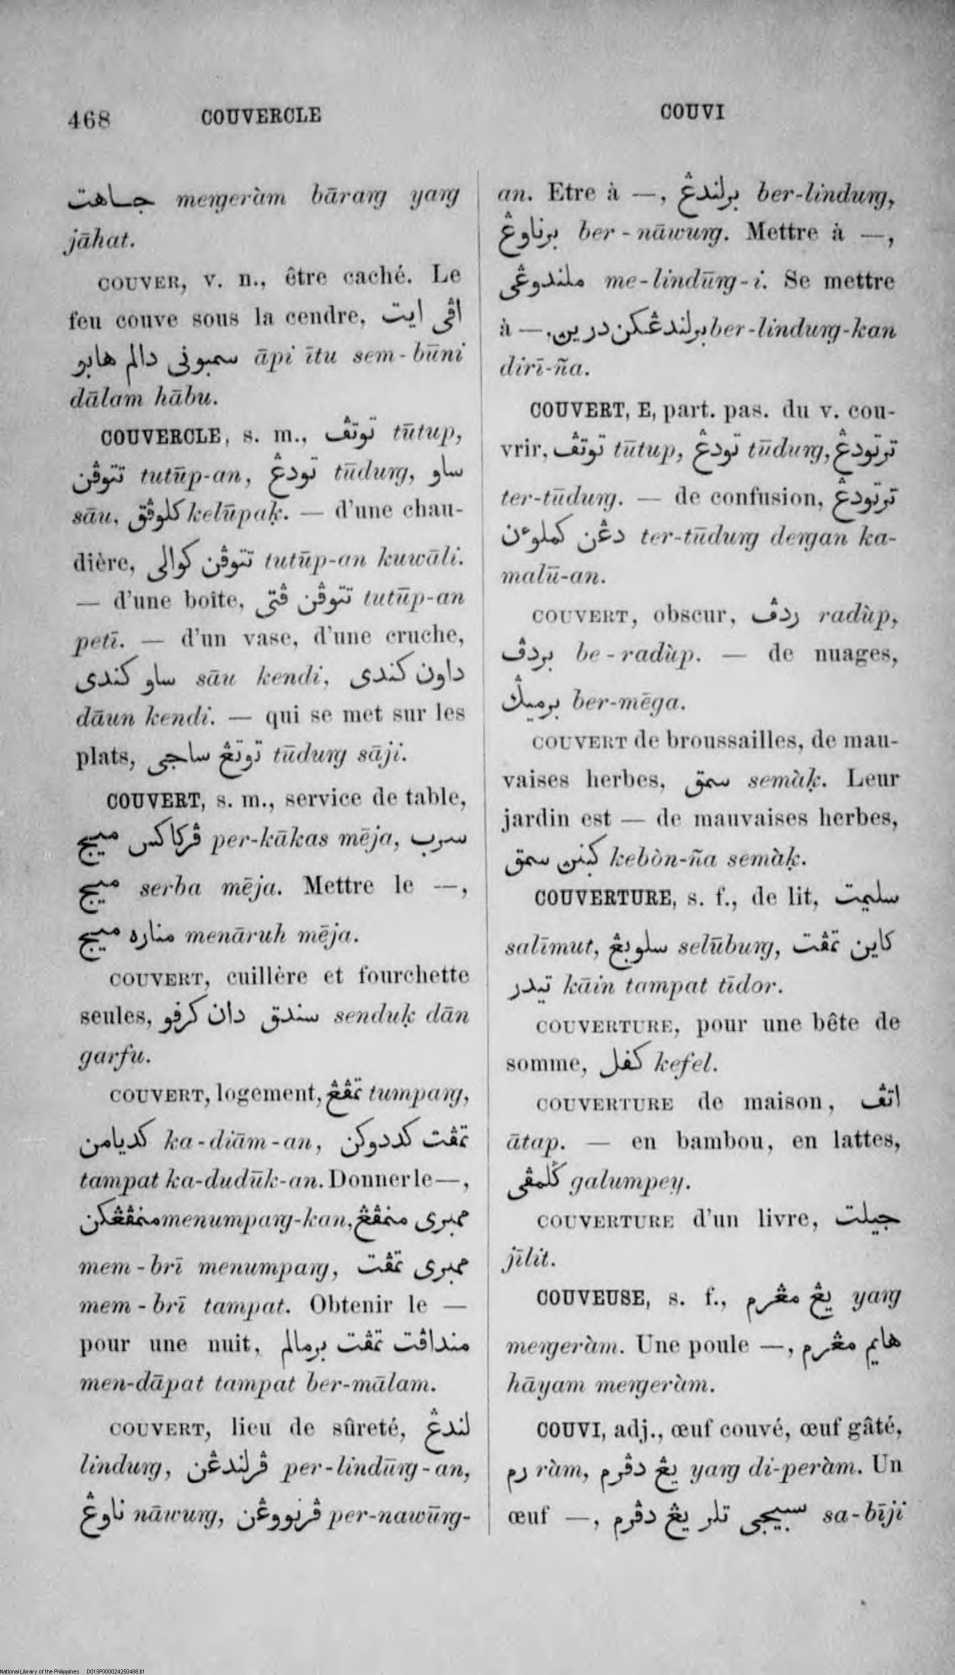 468 COUVERCLE COUVI
جاهت meŋgeràm bāraŋ yaŋ
jāhat.
COUVER, v. n., être caché. Le
feu couve sous la cendre, اڤي ايت
سمبوني دالم هابو āpi ītu sem-būni
dālam hābu.
COUVERCLE, s. m., توتڤ tūtup,
تتوڤن tutūp-an, تودڠ tūduŋ, ساو
sāu, کلوڤق kelūpaḳ. — d'une chau-
dière, تتوڤن کوالي tutūp-an kuwāli.
— d'une boîte, تتوڤن ڤتي tutūp-an
petī. — d'un vase, d'une cruche,
ساو کندي sāu kendi, داون کندي
dāun kendi. — qui se met sur les
plats, توتڠ ساجي tūduŋ sāji.
COUVERT, s. m., service de table,
ڤرکاکس ميج per-kākas mēja, سرب
ميج serba mēja. Mettre le —,
مناره ميج menāruh mēja.
COUVERT, cuillère et fourchette
seules, سندق دان کرفو senduḳ dān
garfu.
COUVERT, logement, تمڤڠ tumpaŋ,
کديامن ka-diām-an, تمڤت کددوکن
tampat ka-dudūk-an. Donner le —,
منمڤڠکن menumpaŋ-kan, ممبري منمڤڠ
mem-brī menumpaŋ, ممبري تمڤت
mem-brī tampat. Obtenir le —
pour une nuit, منداڤت تمڤت برمالم
men-dāpat tampat ber-mālam.
COUVERT, lieu de sûreté, لندڠ
linduŋ, ڤرلندڠن per-lindūŋ-an,
ناوڠ nāwuŋ, ڤرنووڠن per-nawūŋ-
an. Etre à —, برلندڠ ber-linduŋ,
برناوڠ ber-nāwuŋ. Mettre à —,
ملندوڠي me-lindūŋ-i. Se mettre
à —, برلندڠکن درين ber-linduŋ-kan
dirī-ña.
COUVERT, E, part. pas. du v. cou-
vrir, توتڤ tūtup, تودڠ tūduŋ, ترتودڠ
ter-tūduŋ. — de confusion, ترتودڠ
دڠن کملوءن ter-tūduŋ deŋan ka-
malū-an.
COUVERT, obscur, ردڤ radùp,
بردڤ be-radùp. — de nuages,
برميݢ ber-mēga.
COUVERT de broussailles, de mau-
vaises herbes, سمق semàḳ. Leur
jardin est — de mauvaises herbes,
کبنن سمق kebòn-ña semàḳ.
COUVERTURE, s. f., de lit, سليمت
salīmut, سلوبڠ selūbuŋ, کاين تمڤت
تيدر kāin tampat tīdor.
COUVERTURE, pour une bête de
somme, کفل kefel.
COUVERTURE de maison, اتڤ
ātap. — en bambou, en lattes,
ݢلمڤي galumpey.
COUVERTURE d'un livre, جيلت
jīlit.
COUVEUSE, s. f., يڠ مڠرم yaŋ
meŋgeràm. Une poule —, هايم مڠرم
hāyam meŋgeràm.
COUVI, adj., œuf couvé, œuf gâté,
رم ràm, يڠ دڤرم yaŋ di-peràm. Un
œuf —, سبيجي تلر يڠ دڤرم sa-bīji
National Library of the Philippines